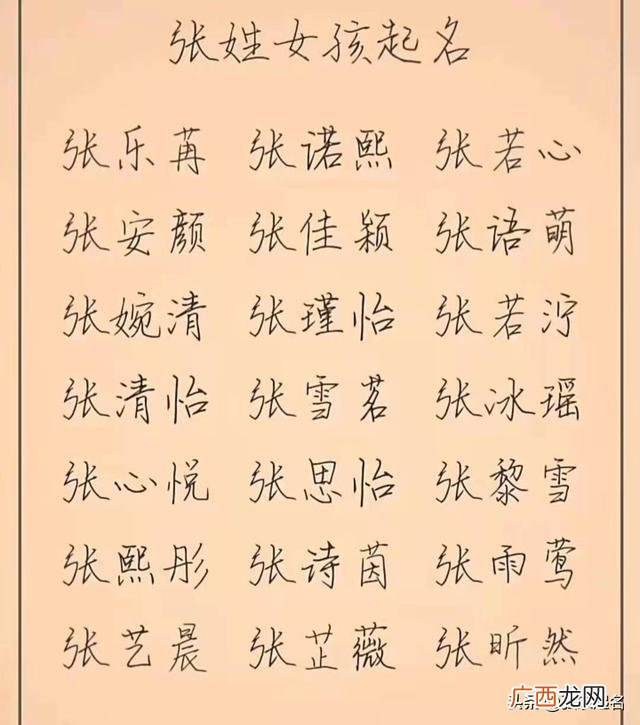 张姓女孩起名
张乐苒 张诺熙 张若心
张安颜 张佳颖 张语萌
张婉清 张瑾怡 张若泞
张清怡 张雪茗 张冰瑶
张心悦 张思怡 张黎雪
张熙彤 张诗茵 张雨莺
张艺晨 张芷薇 张昕然
广西龙网